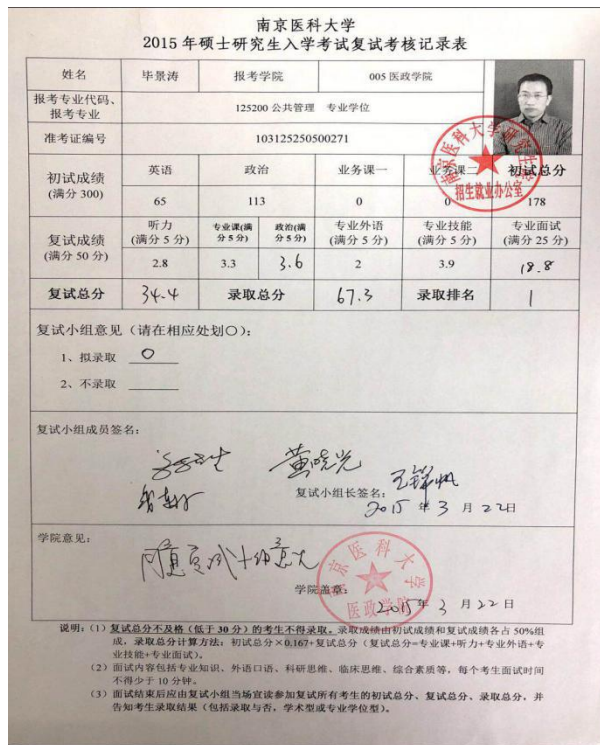 南京医科大学
2015 年硕士研究生入学考试复试考核记录表
姓名 毕景涛 报考学院 005 医政学院
报考专业代码、报考专业 125200 公共管理 专业学位
准考证编号 103125250500271
初试成绩(满分 300) 英语 政治 业务课一 业务课二 初试总分
65 113 0 0 178
复试成绩(满分 50 分) 听力(满分 5 分) 专业课(满分 5 分) 政治(满分 5 分) 专业外语(满分 5 分) 专业技能(满分 5 分) 专业面试(满分 25 分)
2.8 3.3 3.6 2 3.9 18.8
复试总分 34.4 录取总分 67.3 录取排名 1
南京医科大学研究生
招生就业办公室
复试小组意见(请在相应处划〇):
1、拟录取 〇
2、不录取
复试小组成员签名:
黄晓光
复试小组长签名:王锦帆
2015 年 3 月 22日
学院意见:
学院盖章:
南京医科大学
医政学院
2015年 3 月 22 日
说明:(1)复试总分不及格(低于 30 分)的考生不得录取。录取成绩由初试成绩和复试成绩各占 50%组
成,录取总分计算方法:初试总分×0.167+复试总分(复试总分=专业课+听力+专业外语+专
业技能+专业面试)。
(2)面试内容包括专业知识、外语口语、科研思维、临床思维、综合素质等,每个考生面试时间
不得少于 10 分钟。
(3)面试结束后应由复试小组当场宣读参加复试所有考生的初试总分、复试总分、录取总分,并
告知考生录取结果(包括录取与否,学术型或专业学位型)。